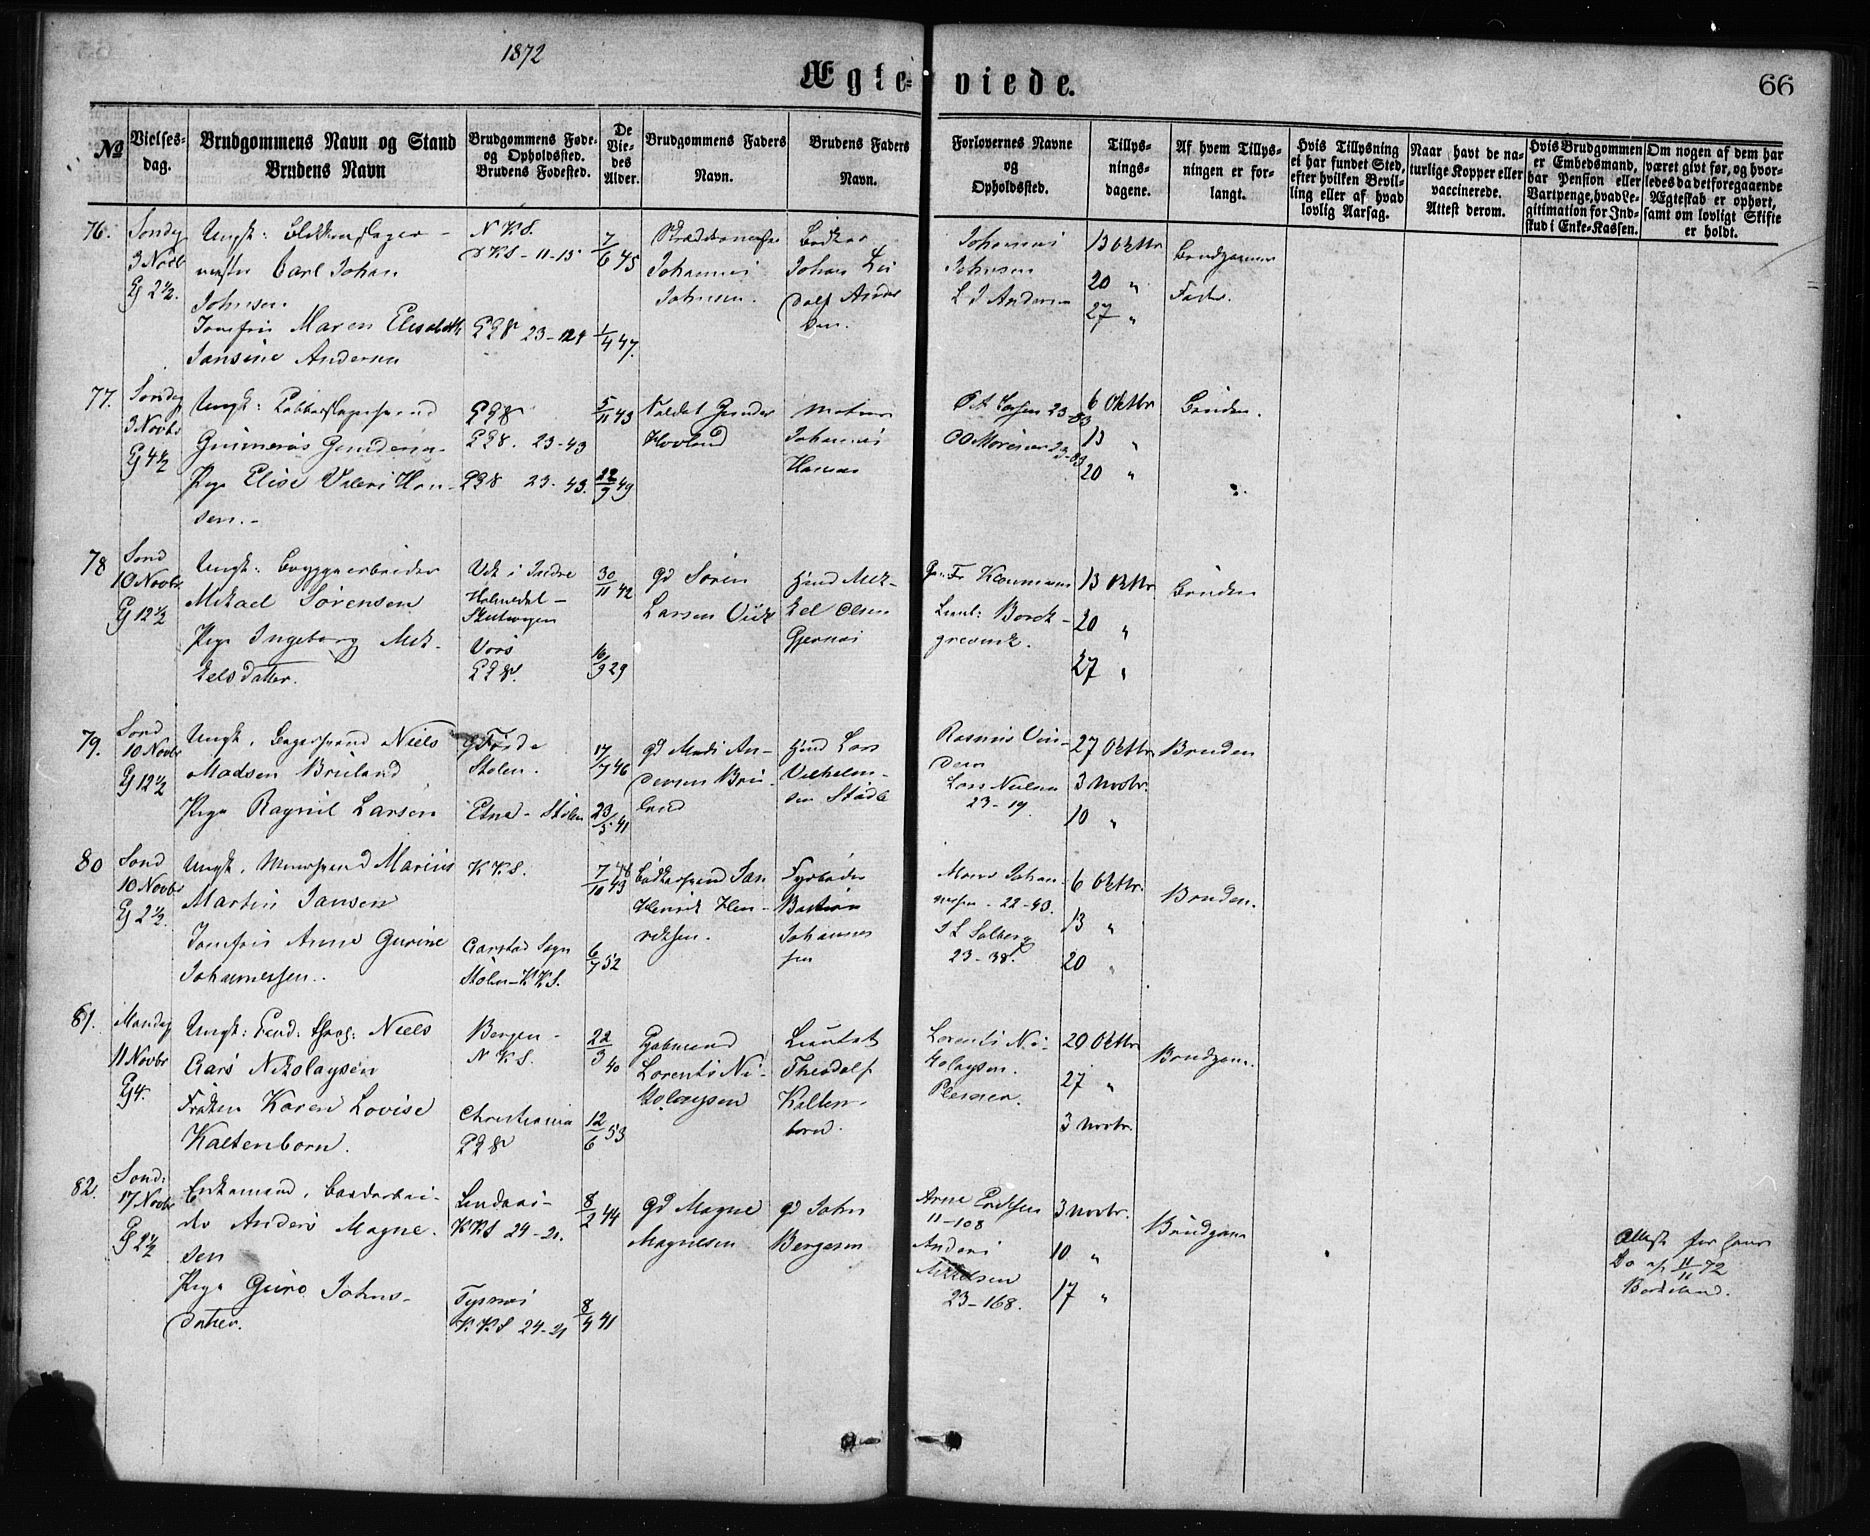 1872
Ægteviede.
66
No
Vielses-
dag.
Brudgommens Navn og Stand
Brudens Navn
Brudgommens Føde-
og Opholdssted.
Brudens Fødested.
De
Vie-
des
Alder.
Brudgommens Faders
Navn.
Brudens Faders
Navn.
Forlovernes Navne
og
Opholdssted.
Tillys-
nings-
dagene.
Af hvem Tillys-
ningen er for-
langt.
Hvis Tillysning
ei har fundet Sted,
efter hvilken Bevil-
ling eller af hvad
lovlig Aarsag.
Naar havt de na-
turlige Kopper eller
vaccinerede.
Attest derom.
Hvis Brudgommen
er Embedsmand,
har Pension eller
Vartpenge, hvad Le-
gitimation for Ind-
skud i Enke-Kassen.
Om nogen af dem har
været givt før, og hvor-
ledes da det foregaaende
Ægteskab er ophørt,
samt om lovligt Skifte
er holdt.
76.
Søndag
3 Novb
Ungk: Blikkenslager-
mester Carl Johan
Johnsen
Jomfru Maren Elisabeth
Jansine Andersen
N K S.
7/6 45
1/4 47.
Johannes
Johnsen.
Bødker
Johan Lu
dolf Ander
sen.
Johannes
Johnsen
L J Andersen
13 Oktbr
20 "
27 "
Brudgommens
Fader.
77.
Søndag
3 Novbr
G 4 1/2
Ungk:
Pige Elise Valeri Han-
sen.
23-43
23-43.
5/11 43
22/9 49
Hovland
Matros
Johannes
Hansen
6 Oktbr
13 "
20 "
Bruden.
78
Sønd
10 Novbr
G 12 1/2
Ungk: Bryggearbeider
Mikael Sørensen
Pige Ingeborg Mik-
kelsdatter.
Vik i Indre
Holmedal-
Skutevigen
Vors
30/11 42
16/9 29
gd Søren
Larsen Viik
Hmd Mik-
kel Olsen
Gjernes
13 Oktbr
20 "
27 "
Bruden
79.
Sønd
10 Novbr
G 12 1/2
Ungk. Bagersvend Niels
Madsen Bruland
Pige Ragnil Larsen
Førde
Stølen.
Etne - Stølen
17/7 46
23/5 41
gd Mads An-
dersen Bru-
land
Hmd Lars
Vilhelm-
sen Støle
Rasmus Vin-
dern
Lars Nielsen
23-19.
27 Oktbr
3 Novbr.
10 "
Bruden
80
Sønd
10 Novbr
G 2 1/2.
Ungk. Murersvend Marius
Martin Jansen
Jomfru Anne Gurine
Johannessen.
K K S.
Stølen - K K S.
7/10 43
6/7 52
Bødkersvend Jan
Henrik Hen-
riksen.
Fyrbøder
Bastian
Johannes
sen
Mons Johan-
nessen - 22-43.
S L Solberg
23-38.
6 Oktbr.
13 "
20 "
Bruden.
81.
Mandag
11 Novbr
G 4.
Ungk: Niels
Aars Nikolaysen
Frøken Karen Lovise
Kaltenborn.
Bergen -
N K S.
Christiania
22/3 40
12/6 53
Lorents Ni-
kolaysen
Theodolf
Kalten-
born.
Lorents Ni-
kolaysen.
20 Oktbr
27 "
3 Novbr.
Brudgom.
82.
Sønd:
17 Novbr
G 2 1/2
Enkemand, Baadarbei-
der Anders Magne-
sen
Pige Guro Johns-
datter.
Lindaas -
K K S 24-21.
Tysnes
K K S 24-21
8/2 44
8/4 41
gd Magne
Magnesen
gd John
Bergesen
Arne
11-108
Anders
Mikkelsen
23-168.
3 Novbr.
10 "
17 "
Brudgom
Attest for
11/11 72